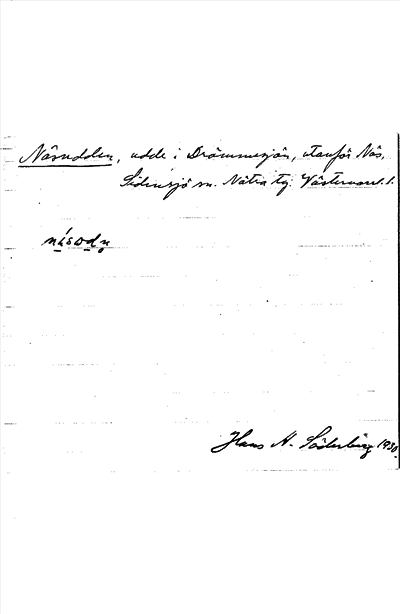 Näsudden, udde i Drömmesjön, utanför Näs,
Sidensjö sn. Nätra tg. Västernorrl. l.
Hans A. Söderberg 1930.